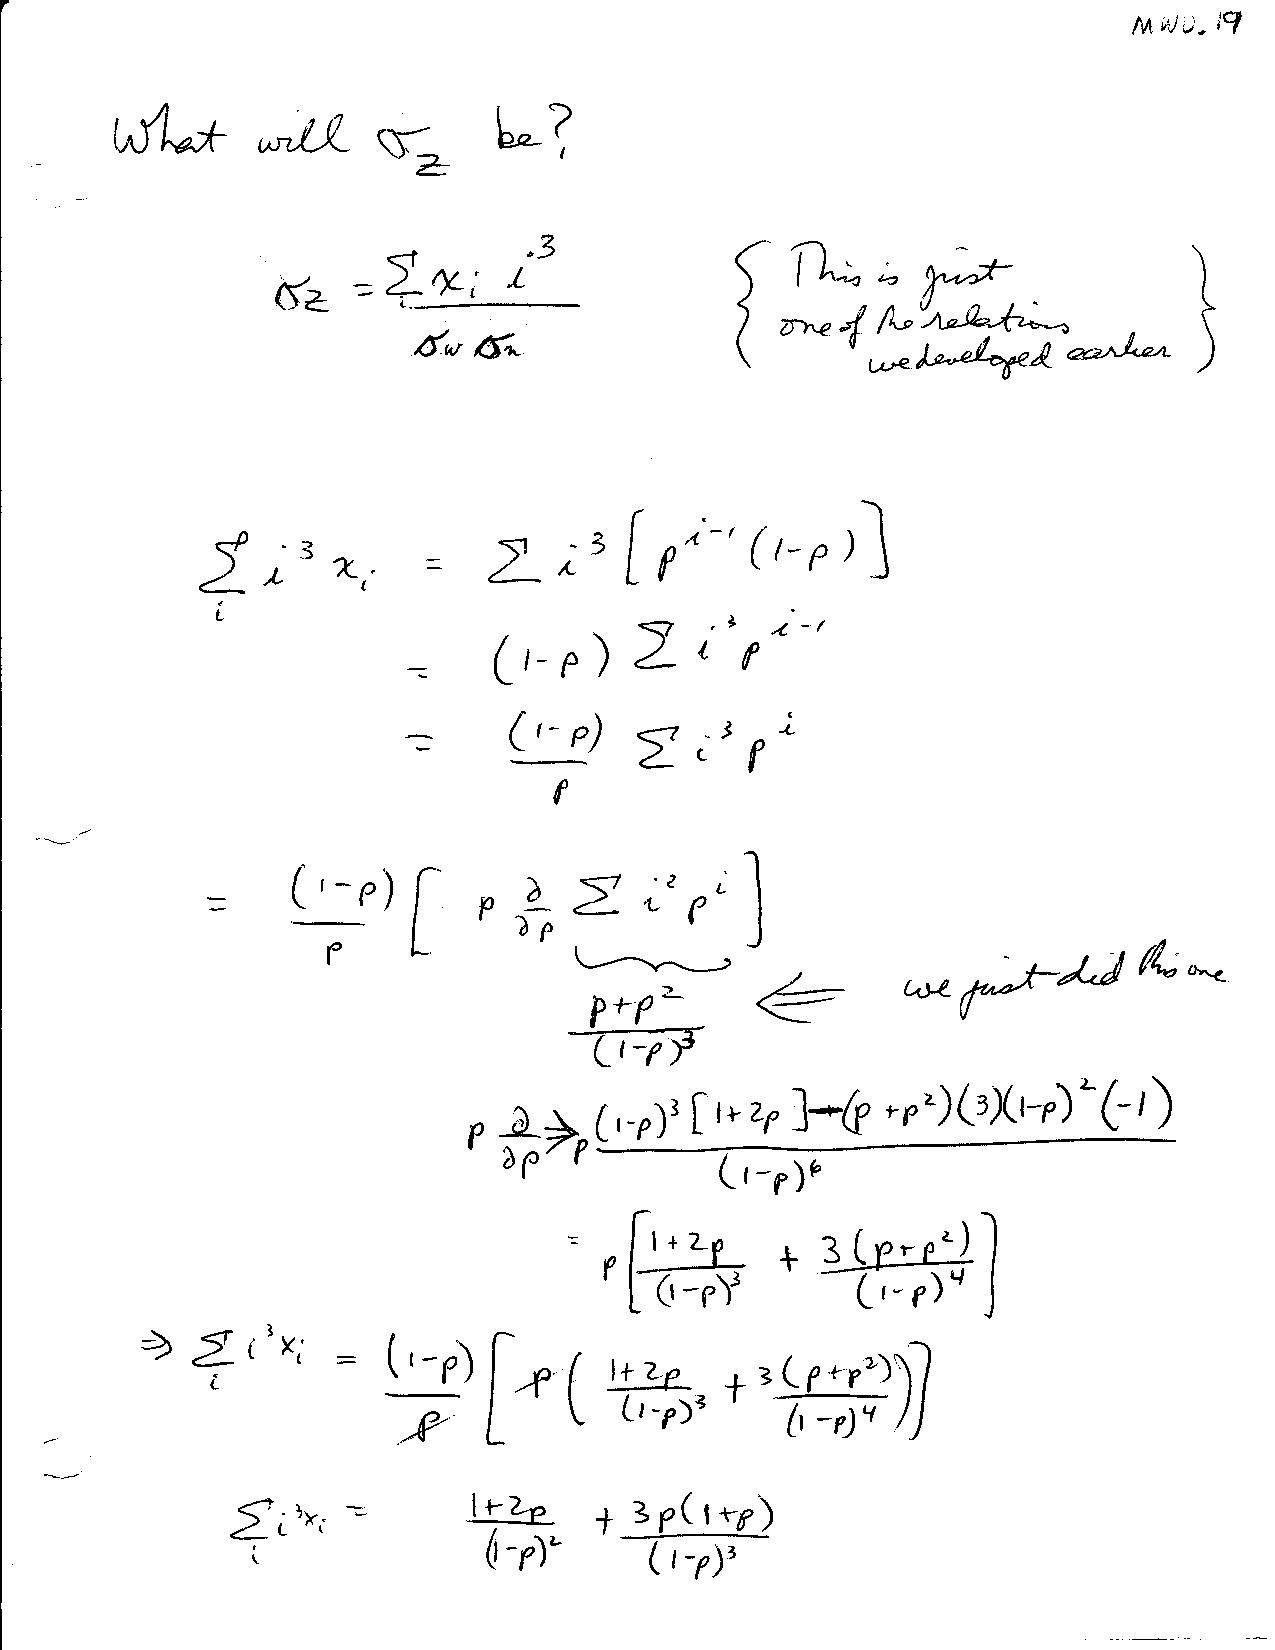 MWD.19
What will σ_z be?
σ_z = Σ_i x_i i^3 / σ_w σ_n { This is just
one of the relations
we developed earlier }
Σ_i i^3 x_i = Σ i^3 [ p^{i-1} (1-p) ]
= (1-p) Σ i^3 p^{i-1}
= (1-p)/p Σ i^3 p^i
= (1-p)/p [ p ∂/∂p Σ i^2 p^i ]
(p+p^2)/(1-p)^3 ⇐ we just did this one
p ∂/∂p ⇒ p ((1-p)^3 [1+2p] - (p+p^2)(3)(1-p)^2(-1))/(1-p)^6
= p [ (1+2p)/(1-p)^3 + 3(p+p^2)/(1-p)^4 ]
⇒ Σ_i i^3 x_i = (1-p)/p [ p ( (1+2p)/(1-p)^3 + 3(p+p^2)/(1-p)^4 ) ]
Σ_i i^3 x_i = (1+2p)/(1-p)^2 + 3p(1+p)/(1-p)^3